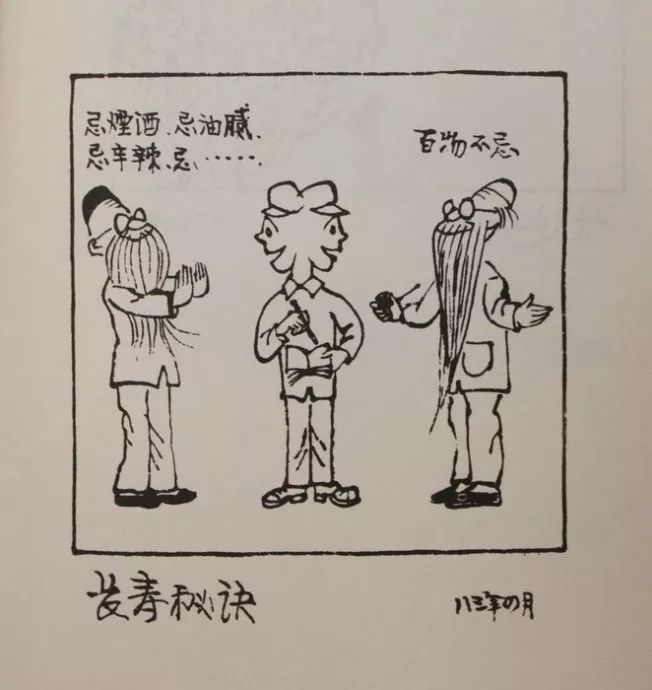 忌煙酒、忌油腻、
忌辛辣、忌、……
百物不忌
长寿秘诀
八三年四月